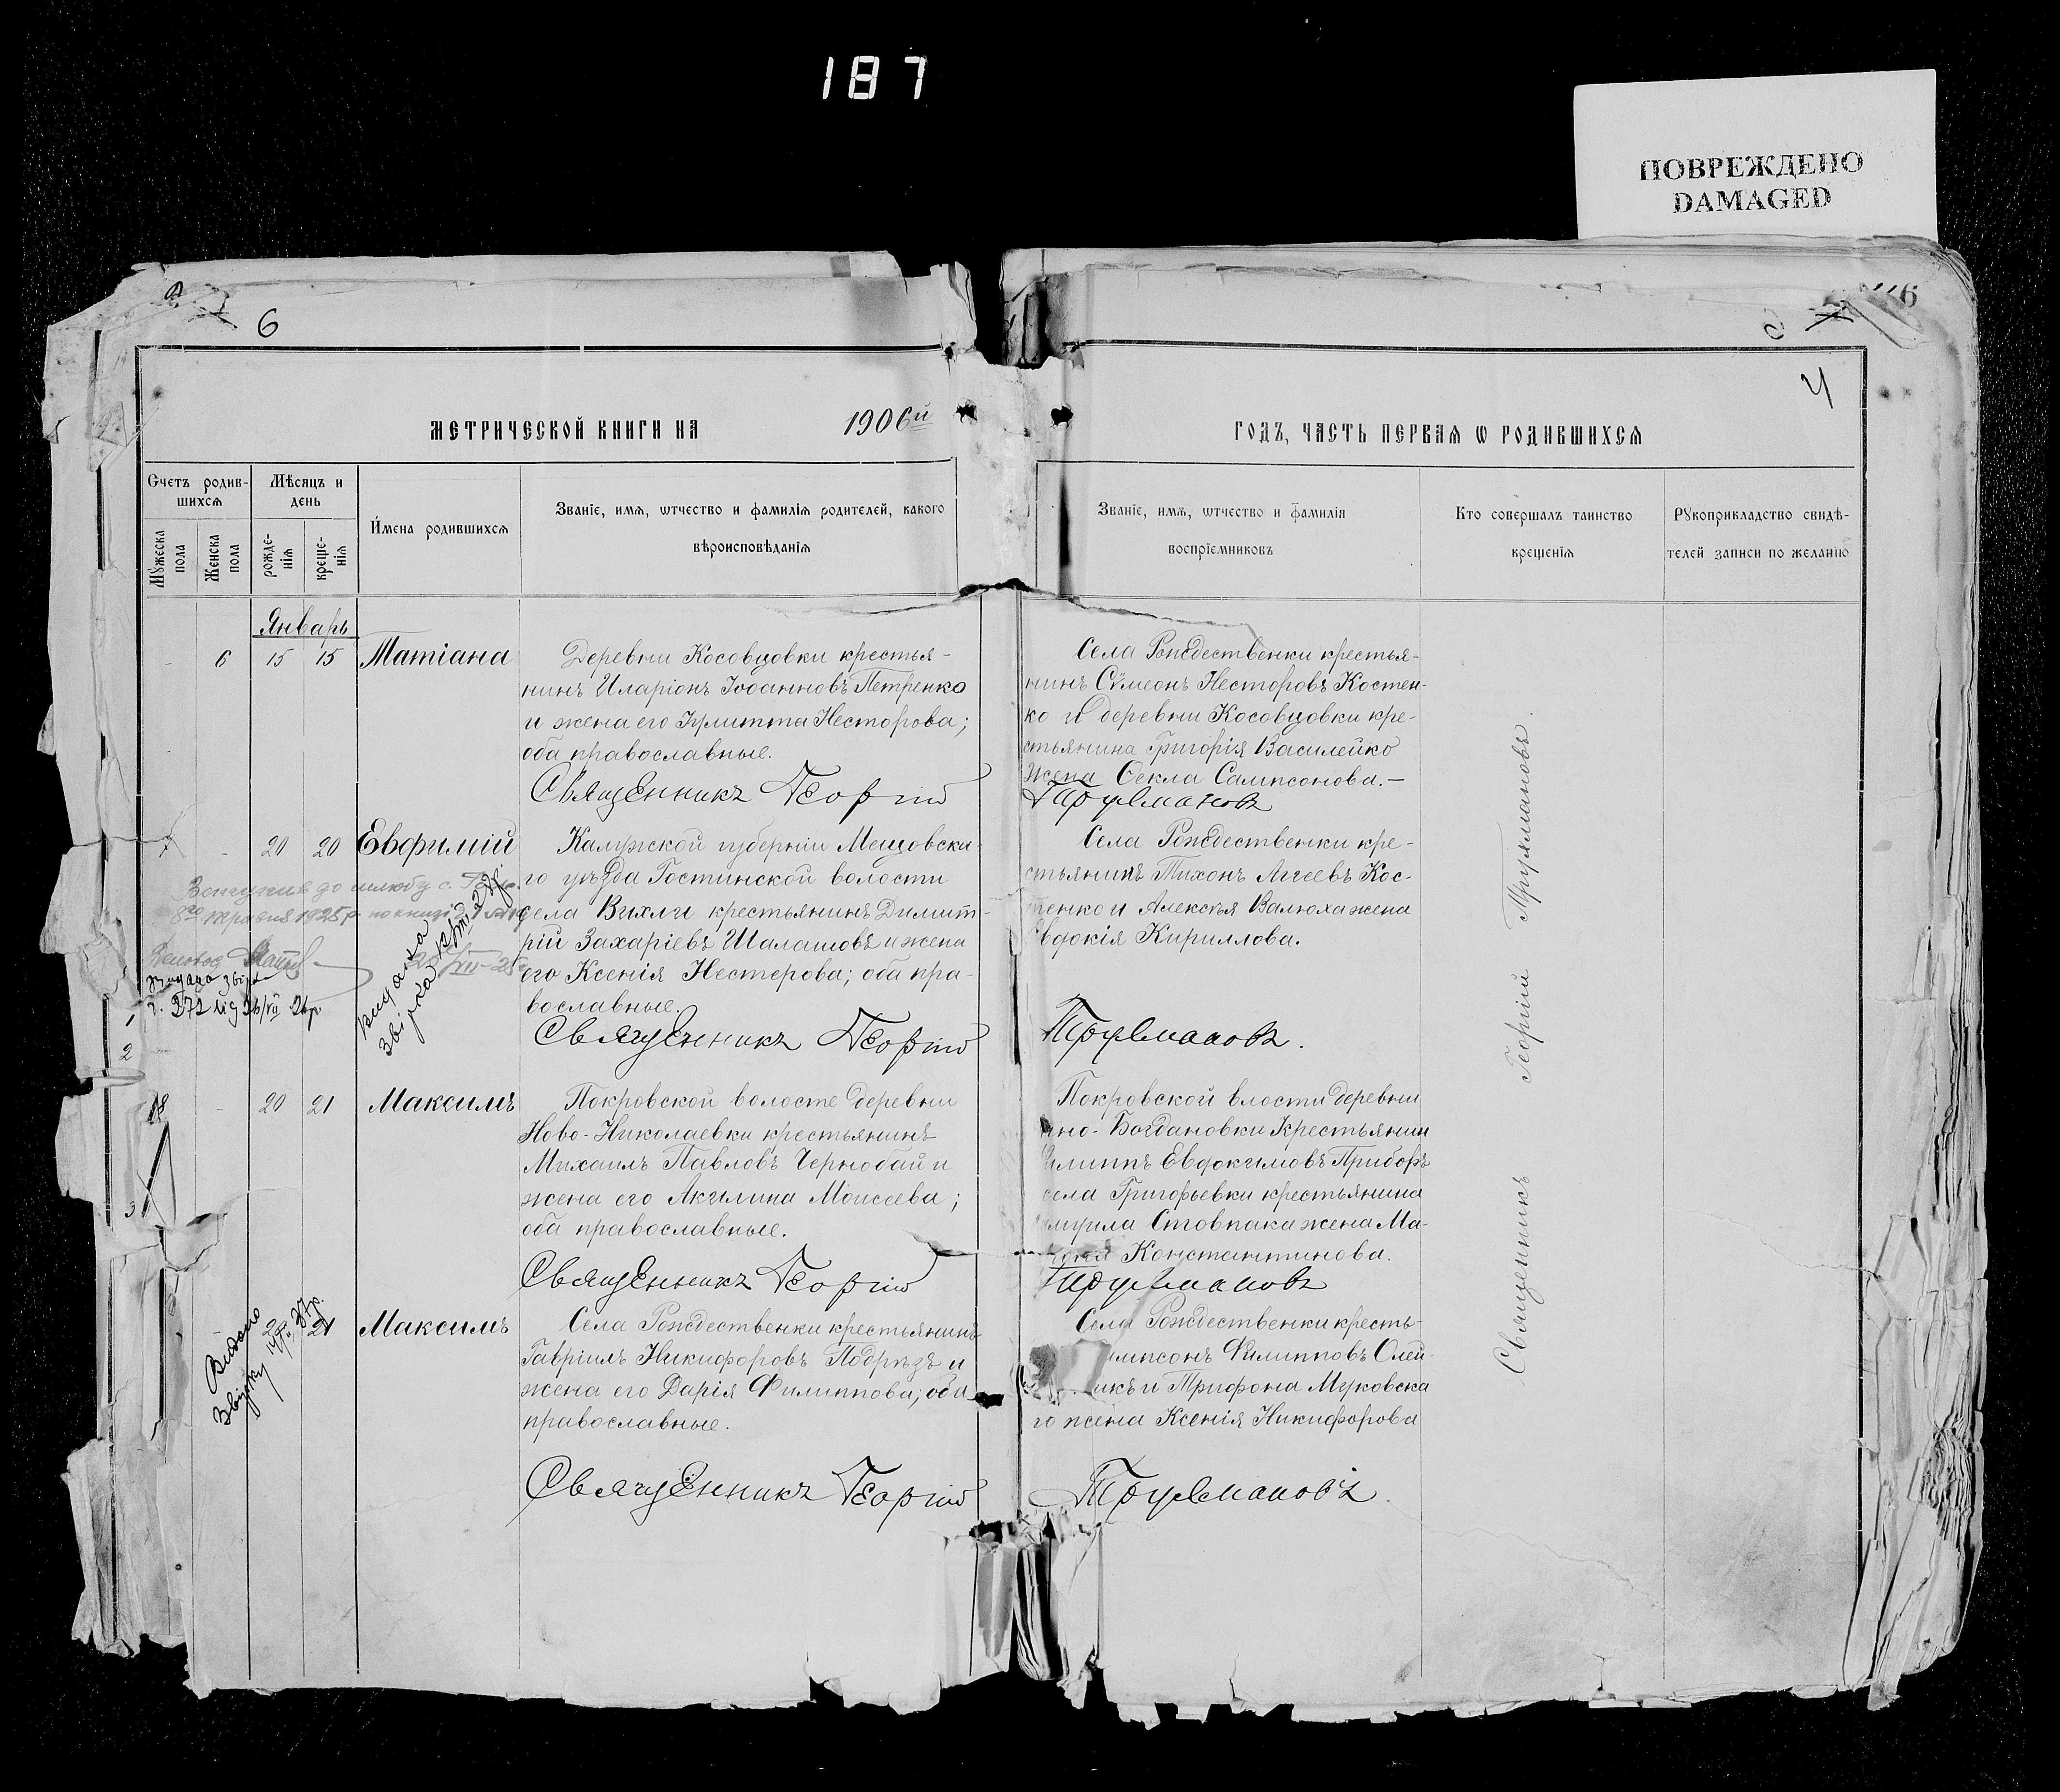 187
ПОВРЕЖДЕНО
DAMAGED
6
4
МЕТРИЧЕСКОЙ КНИГИ НА 1906й ГОДЪ, ЧАСТЬ ПЕРВАѦ Ѡ РОДИВШИХСѦ
Счетъ родив-
шихсѧ
Мѣсяцъ и
день
Мꙋжеска
пола
Женска
пола
рожде-
нїѧ
креще-
нїѧ
Имена родившихсѧ
Званїе, имѧ, ѡтчество и фамилїѧ родителей, какого
вѣроисповѣданїѧ
Званїе, имѧ, ѡтчество и фамилїѧ
воспрїемниковъ
Кто совершалъ таинство
крещенїѧ
Рꙋкоприкладство свидѣ-
телей записи по желанїю
Январь
- 6 15 15 Татіана
Деревни Косовцовки крестья-
нинъ Иларіонъ Іоанновъ Петренко
и жена его Іулитта Несторова;
оба православные.
Священникъ Георгій
Села Рождественки крестья-
нинъ Сѵмеонъ Несторовъ Костен-
ко и деревни Косовцовки кре-
стьянина Григорія Василейко
жена Ѳекла Сампсонова.-
Труфмановъ
7 - 20 20 Евфимій
Калужской губерніи Мещовска-
го уѣзда Гостинской волости
села Вихли крестьянинъ Димит-
рій Захаріевъ Шалашовъ и жена
его Ксенія Нестерова; оба пра-
вославные.
Священникъ Георгій
Села Рождественки кре-
стьянинъ Тихонъ Аггеевъ Кос-
тенко и Алексѣя Валюха жена
Евдокія Кириллова.
Труфмановъ.
до шлюбу с.
1925 р. по книзі
видана
звірка
1
2
3
8 - 20 21 Максимъ
Покровской волосте деревни
Ново-Николаевки крестьянинъ
Михаилъ Павловъ Чернобай и
жена его Акилина Моисеева;
оба православные.
Священникъ Георгій
Покровской влости деревни
но-Богдановки крестьянин
Филиппъ Евдокимовъ Приборъ
села Григорьевки крестьянина
Стовпака жена Ма-
Константинова.
Труфмановъ
21 Максимъ
Видано
Звірку
Села Рождественки крестьянинъ
Гавріилъ Никифоровъ Подрѣзъ и
жена его Дарія Филиппова; оба
православные.
Священникъ Георгій
Села Рождественки кресть-
Филипповъ Олей-
икъ и Трифона Муковска
го жена Ксенія Никифорова
Труфмановъ.
Священникъ Георгій Труфмановъ.